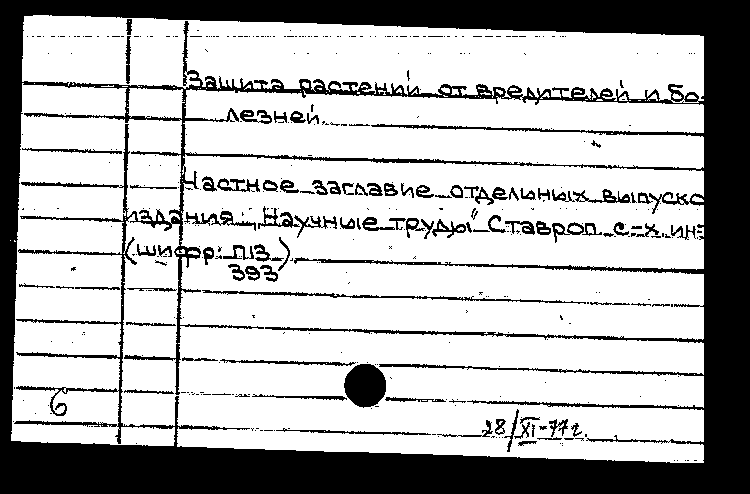 Защита растений от вредителей и бо-
лезней.
Частное заглавие отдельных выпуско
издания: „Научные труды" Ставроп. с-х. ин-
(шифр: П13
393).
6
28/XI-77 г.